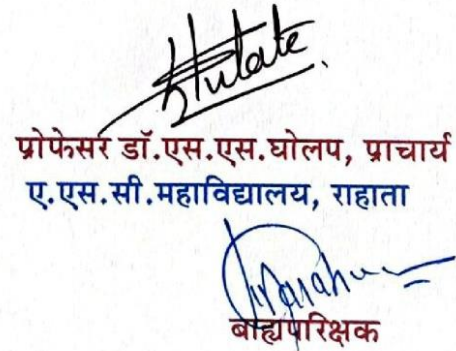 प्रोफेसर डॉ.एस.एस.घोलप, प्राचार्य
ए.एस.सी.महाविद्यालय, राहाता
बाह्यपरिक्षक